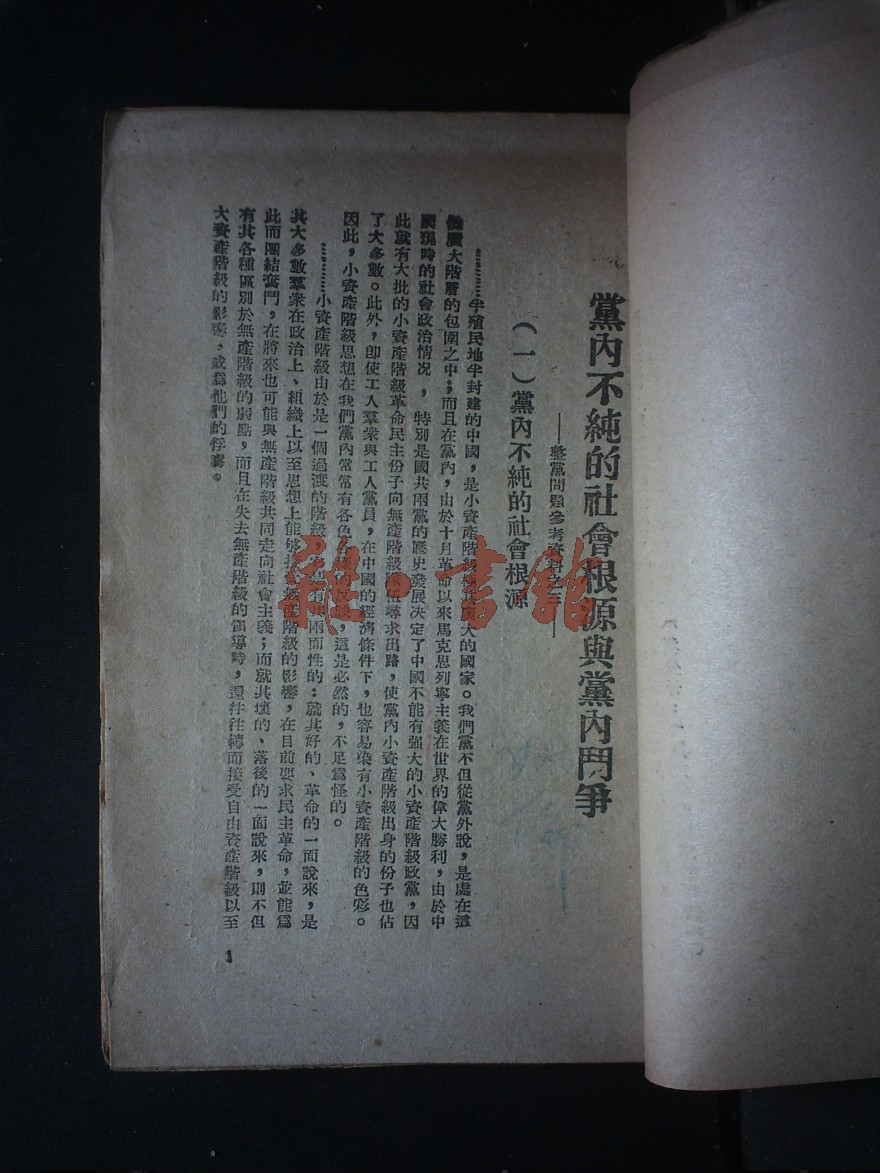 黨內不純的社會根源與黨內鬥爭
——整黨問題參考資料之三——
（一）黨內不純的社會根源
…………半殖民地半封建的中國，是小資產階級極其廣大的國家。我們黨不但從黨外說，是處在這
個廣大階層的包圍之中；而且在黨內，由於十月革命以來馬克思列寧主義在世界的偉大勝利，由於中
國現時的社會政治情况，特別是國共兩黨的歷史發展决定了中國不能有强大的小資產階級政黨，因
此就有大批的小資產階級革命民主份子向無產階級隊伍尋求出路，使黨內小資產階級出身的份子也佔
了大多數。此外，卽使工人羣衆與工人黨員，在中國的經濟條件下，也容易染有小資產階級的色彩。
因此，小資產階級思想在我們黨內常常有各色各樣的反映，這是必然的，不足爲怪的。
…………小資產階級由於是一個過渡的階級，有兩面性的：就其好的、革命的一面說來，是
其大多數羣衆在政治上、組織上以至思想上能够接受無產階級的影響，在目前要求民主革命，並能爲
此而團結奮鬥，在將來也可能與無產階級共同走向社會主義；而就其壞的、落後的一面說來，則不但
有其各種區別於無產階級的弱點，而且在失去無產階級的領導時，還往往轉而接受自由資產階級以至
大資產階級的影響，或爲他們的俘虜。
1
雜·書館